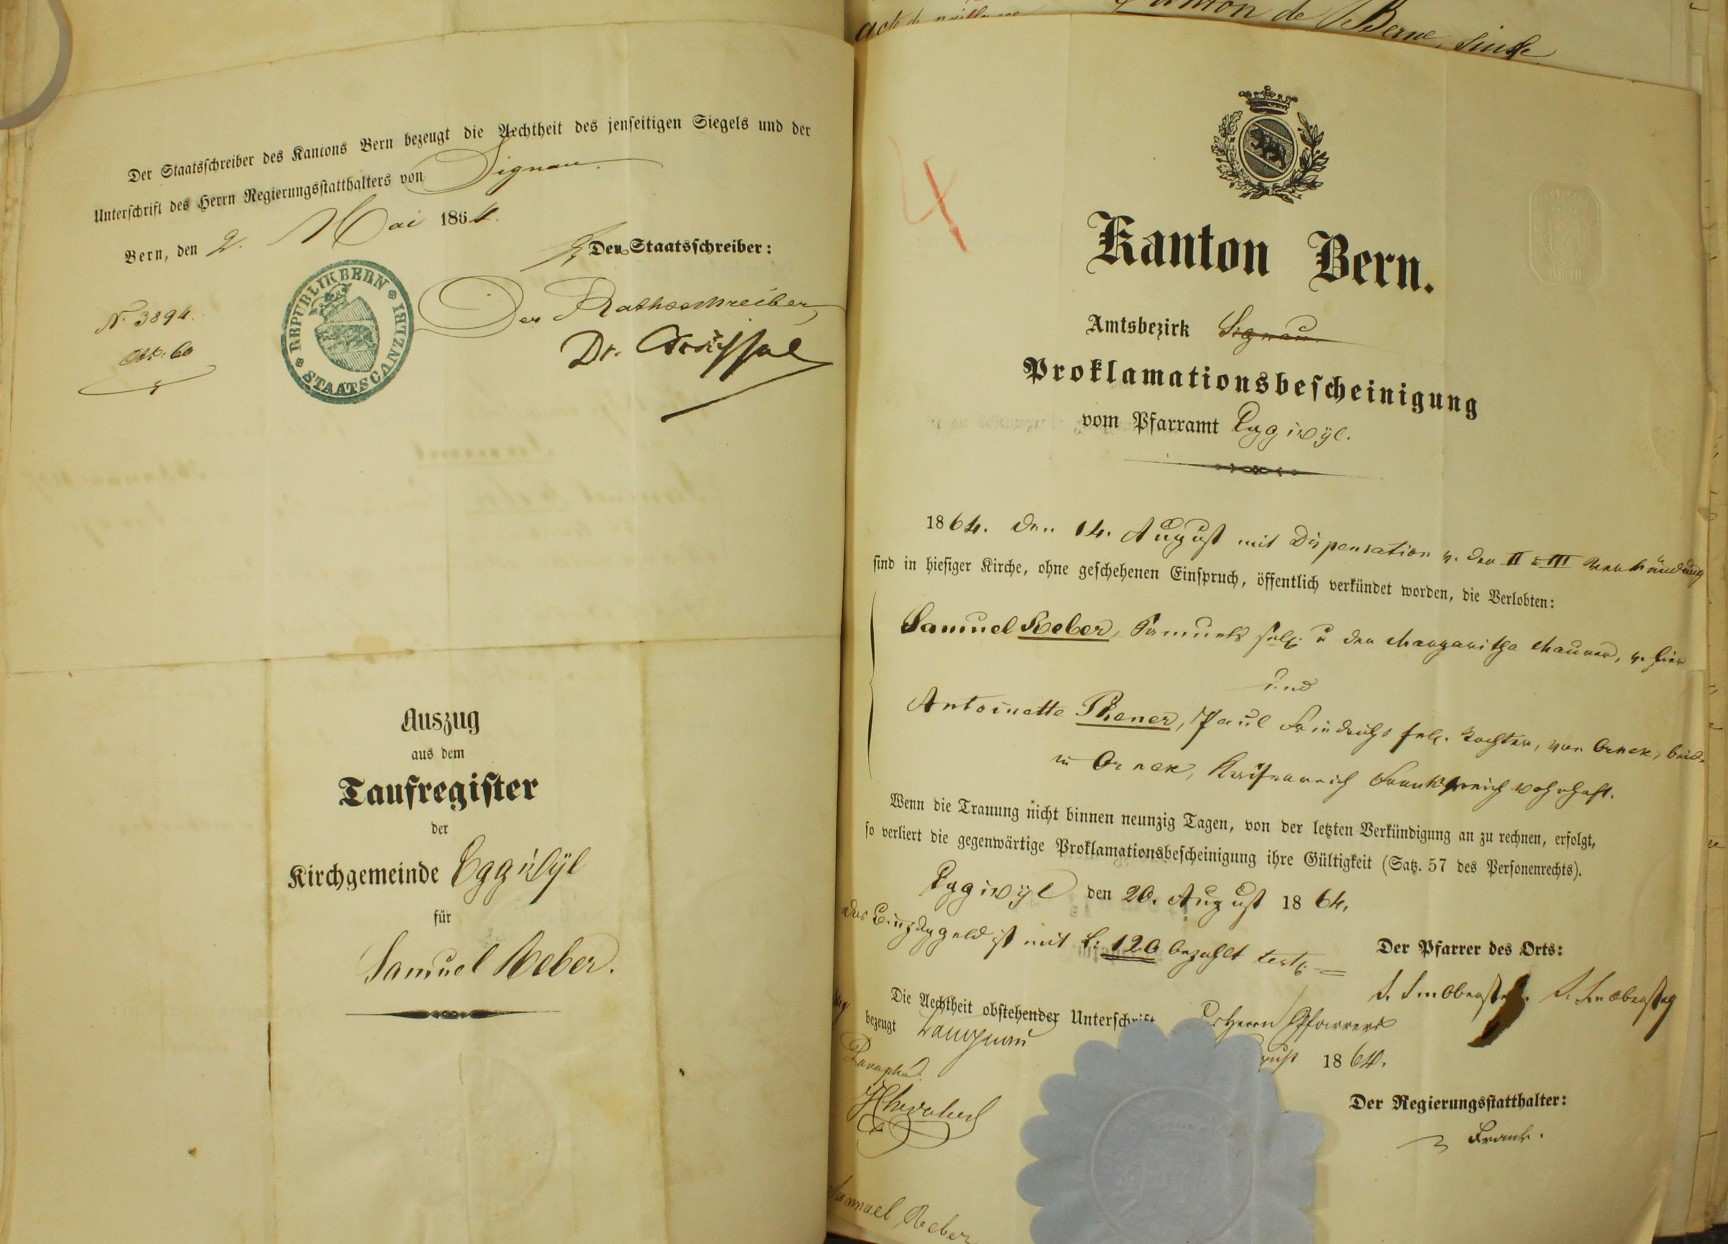 Der Staatsschreiber des Kantons Bern bezeugt die Aechtheit des jenseitigen Siegels und der
Unterschrift des Herrn Regierungsstatthalters von Signau.
Bern, den 2. Mai 1864.
Der Staatsschreiber:
Der Rathsschreiber
Dr.
N° 3894.
60
REPUBLIK BERN
STAATSCANZLEI
Auszug
aus dem
Taufregister
der
Kirchgemeinde Eggiwÿl
für
Samuel Reber.
Canton de Berne,
4
Kanton Bern.
Amtsbezirk Signau
Proklamationsbescheinigung
vom Pfarramt Eggiwÿl.
1864. den 14. August mit Dispensation v. der II & III Verkündung
sind in hiesiger Kirche, ohne geschehenen Einspruch, öffentlich verkündet worden, die Verlobten:
Samuel Reber, Samuels sel. u der Margaritha Maurer, v. hier
und
Antoinette Thener, Paul Friedrichs sel. Tochter, von Ornex, beide
in Ornex, Kaiserreich Frankreich wohnhaft.
Wenn die Trauung nicht binnen neunzig Tagen, von der letzten Verkündigung an zu rechnen, erfolgt,
so verliert die gegenwärtige Proklamationsbescheinigung ihre Gültigkeit (Satz. 57 des Personenrechts).
Eggiwÿl den 20. August 1864.
Das Einzuggeld ist mit f: 120 bezahlt
Der Pfarrer des Orts:
Die Aechtheit obstehender Unterschrift Herrn Pfarrers
bezeugt Langnau August 1864.
Der Regierungsstatthalter:
Samuel Reber